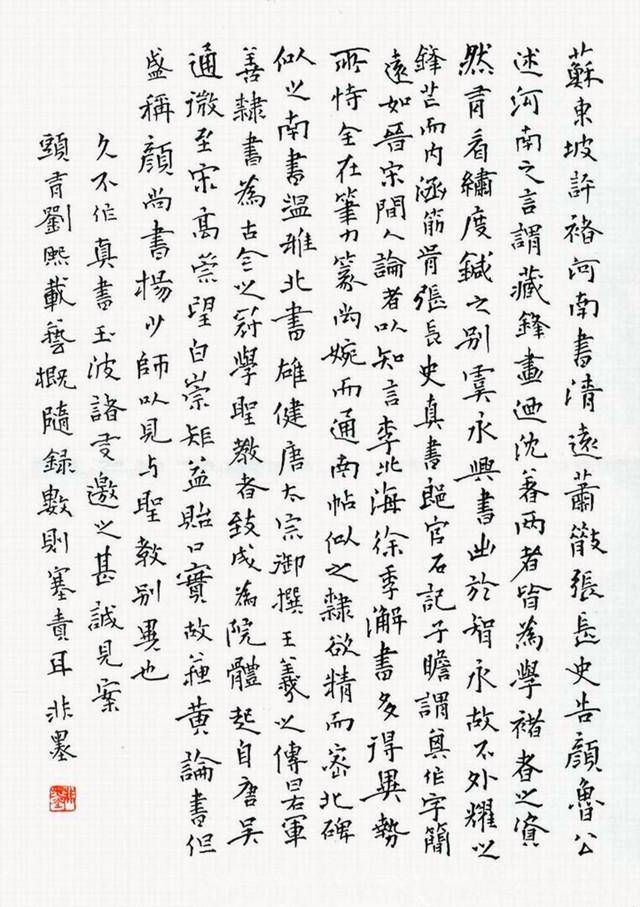 蘇東坡評褚河南書清遠蕭散張長史告顏魯公
述河南之言謂藏鋒畫迺沈著兩者皆為學褚者之資
然有看繡度鍼之別虞永興書出於智永故不外耀以
鋒芒而內涵筋骨張長史真書郎官石記子瞻謂其作字簡
遠如晉宋間人論者以知言李北海徐季澥書多得異勢
所恃全在筆力篆尚婉而通南帖似之隸欲精而密北碑
似之南書溫雅北書雄健唐太宗御撰王羲之傳曰右軍
善隸書為古今之冠學聖教者致成為院體起自唐吳
通微至宋高崇望白崇矩益貽口實故蘇黃論書但
盛稱顏尚書楊少師以見与聖教別異也
久不作真書玉波諸友邀之甚誠見案
頭有劉熙載藝概隨錄數則塞責耳非墨
非墨